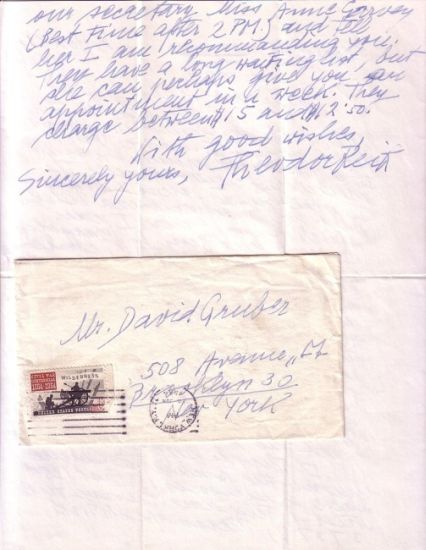 our secretary Miss Anne
(Best time after 2 P.M.) and tell
her I am recommanding you.
They have a long waiting list, but
she can perhaps give you an
appointment in a week. They
charge between $5 and $12.50.
With good wishes,
Sincerely yours, Theodor Reik
Mr. David Gruber
508 Avenue
Brooklyn 30
New York
NEW YORK, N.Y.